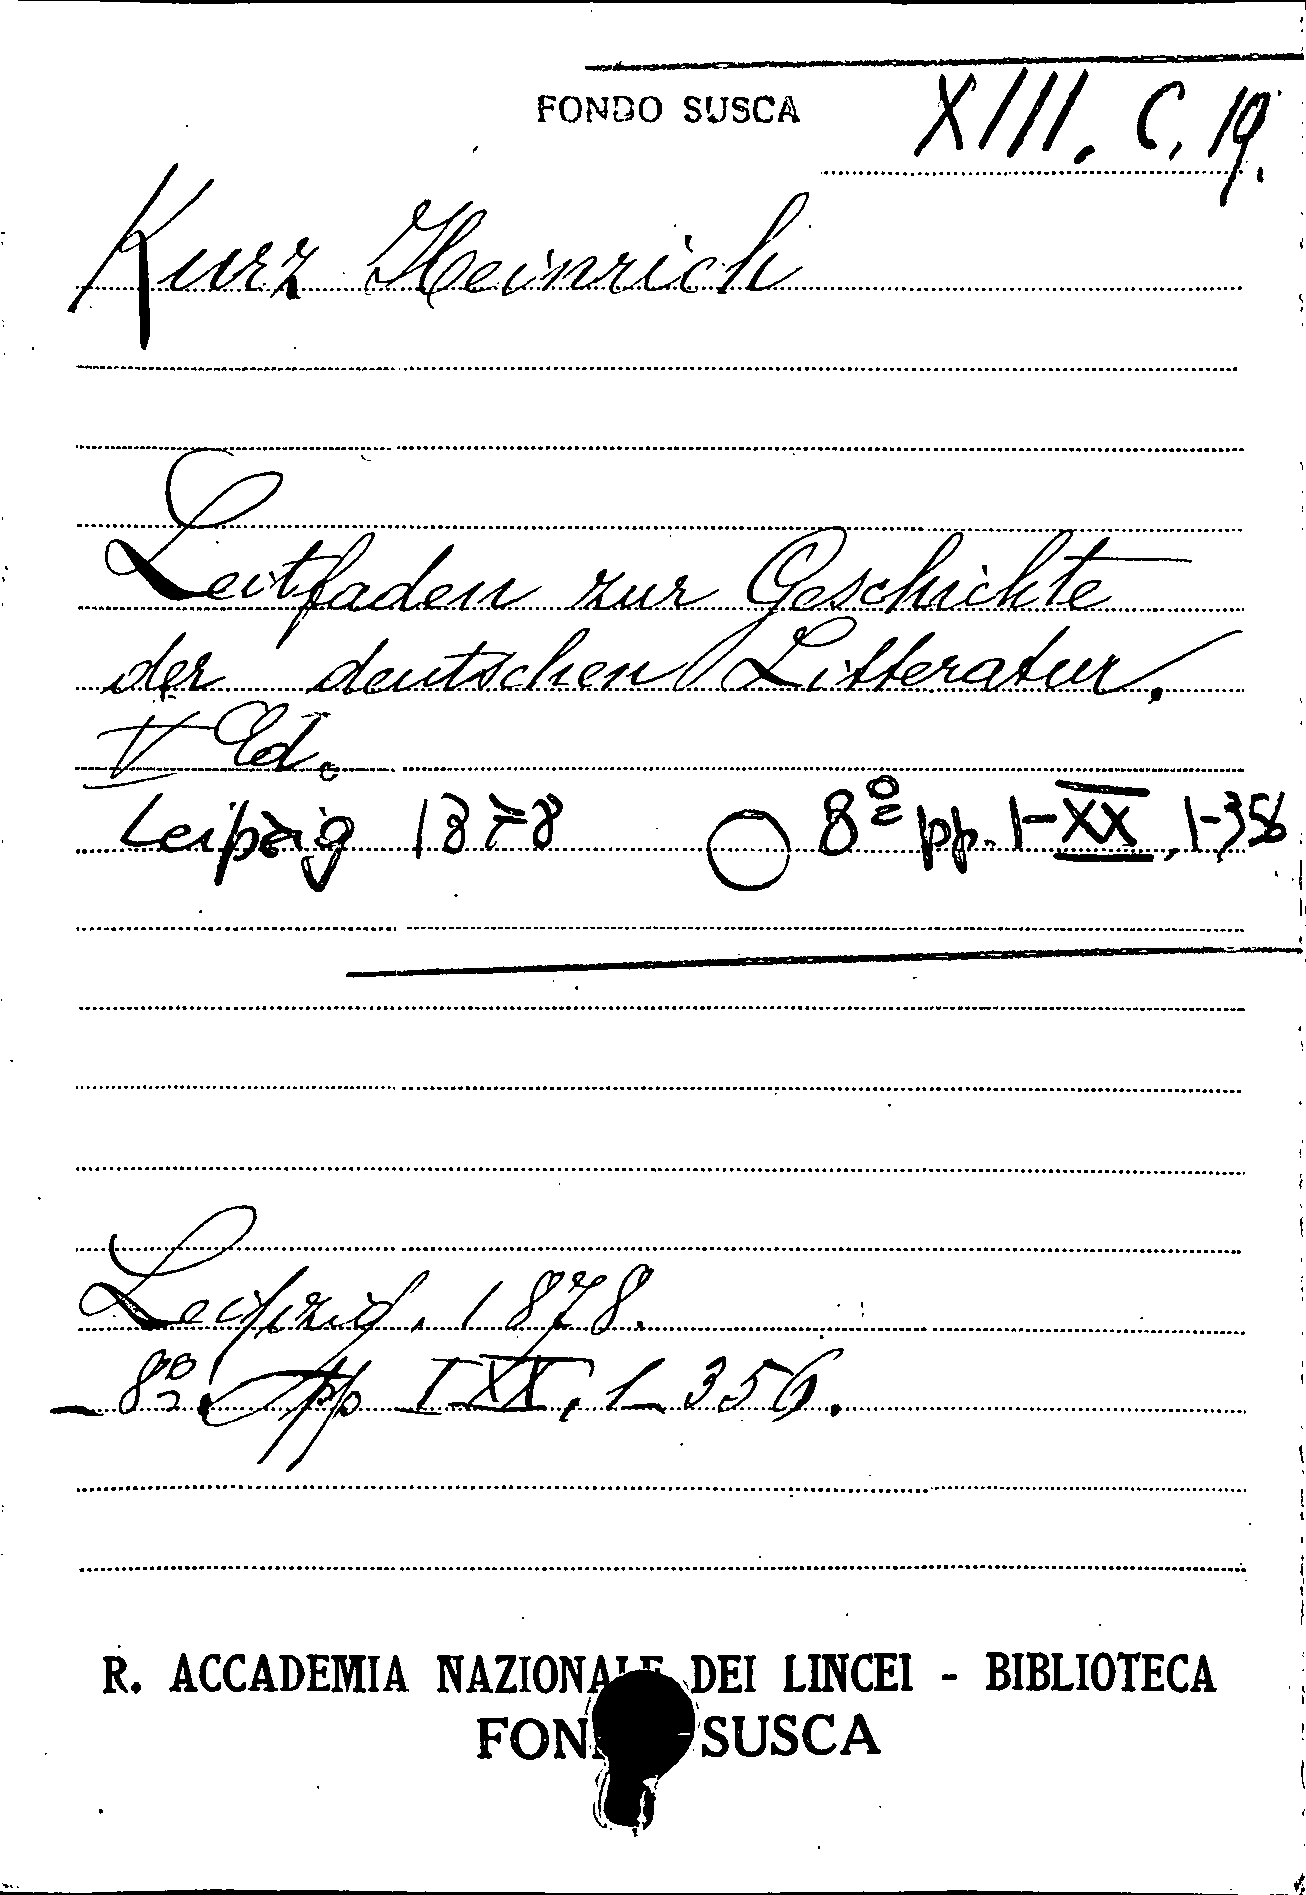 FONDO SUSCA XIII. C. 19.
Kurz Heinrich
Leitfaden zur Geschichte
der deutschen Litteratur.
V Ed.
Leipzig 1878 8º pp. I-XX, 1-356
Leipzig. 1878.
8º. pp I-XX, 1-356.
R. ACCADEMIA NAZIONALE DEI LINCEI - BIBLIOTECA
FONDO SUSCA